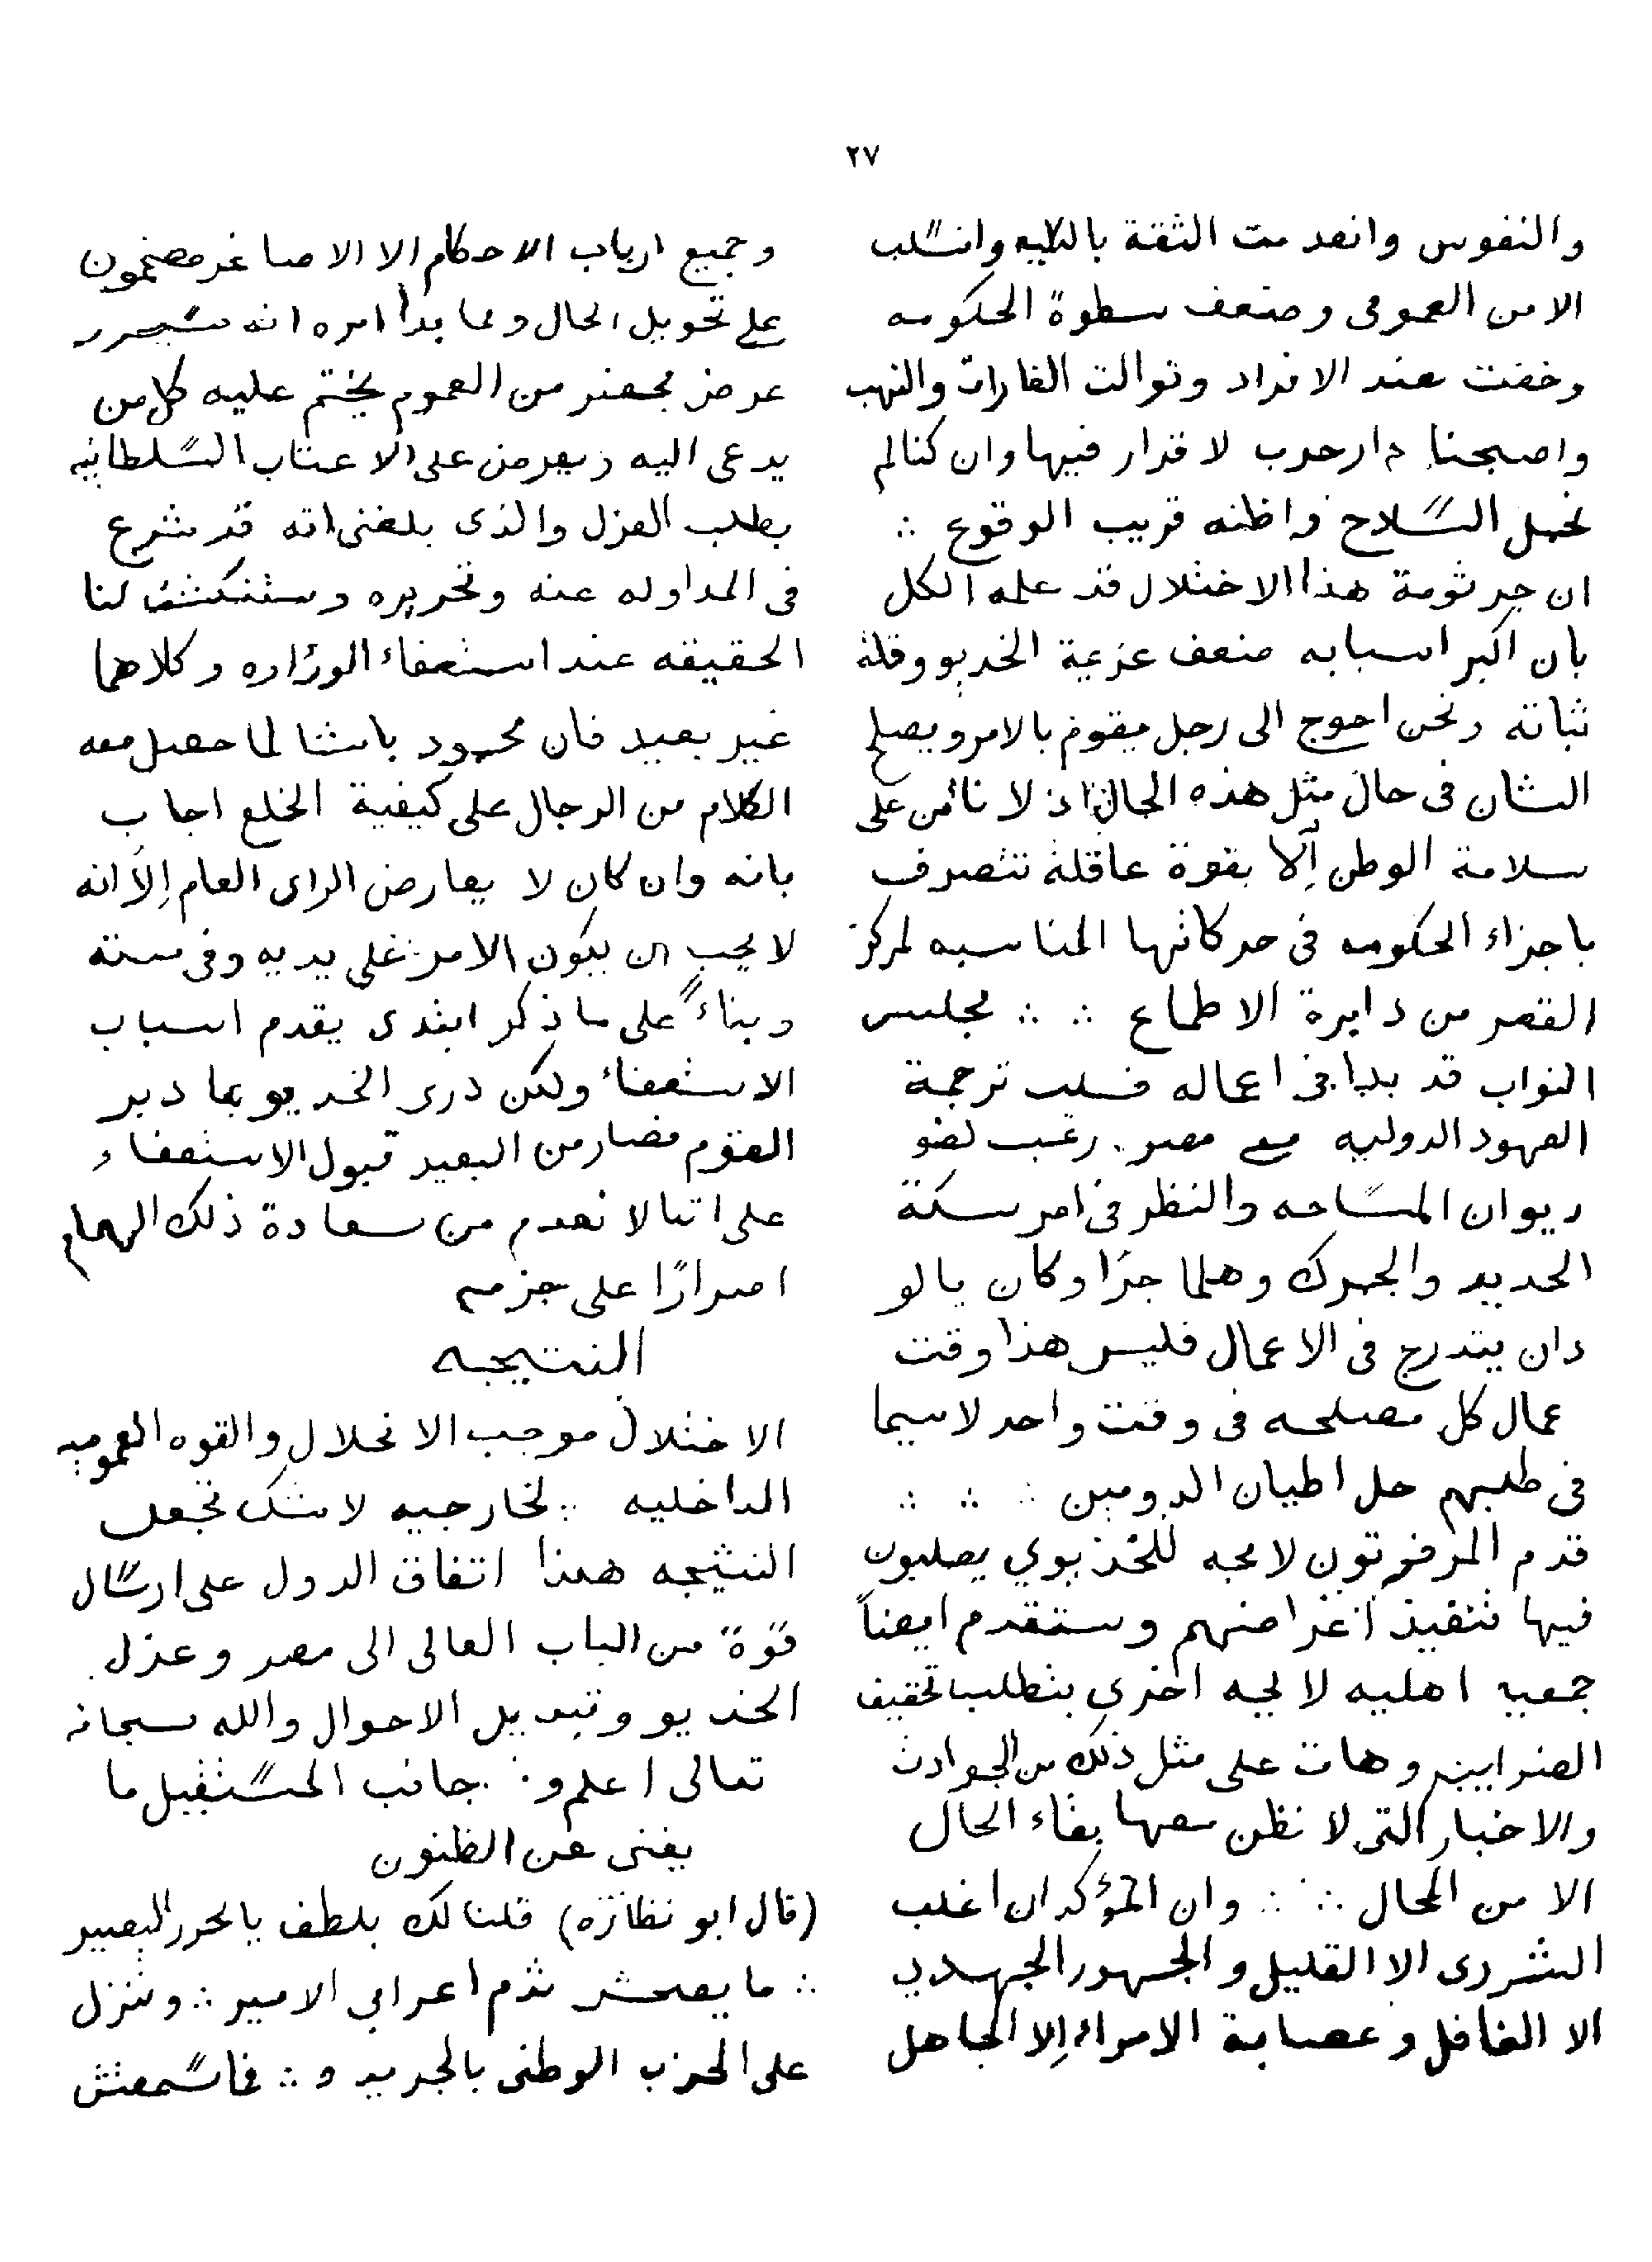 ٢٧
والنفوس وانعدمت الثقة بالكليه وانسلب
الامن العمومى وضعف سطوة الحكومه
وخفت عند الافراد وتوالت الغارات والنهب
واصبحنا دار حرب لا قرار فيها وان كنا لم
نحمل السلاح واظنه قريب الوقوع ∴
ان جرثومة هذا الاختلال قد علمه الكل
بان اكبر اسبابه ضعف عزيمة الخديو وقلة
ثباته ونحن احوج الى رجل يقوم بالامر ويصلح
الشان فى حال مثل هذه الحال اذ لا نأمن على
سلامة الوطن إلّا بقوة عاقلة تتصرف
باجزاء الحكومه فى حركاتها المناسبه لمركز
القصر من دايرة الاطماع ∴ ∴ مجلس
النواب قد بدا فى اعماله فسلب ترجمة
العهود الدوليه مع مصر. رغب لغو
ديوان المساحه والنظر فى امر سكة
الحديد والجمرك وهلما جرّا وكان بالو
دان يتدرج فى الاعمال فليس هذا وقت
عمال كل مصلحه فى وقت واحد لاسيما
فى طلبهم حل اطيان الدومين ∴ ∴ ∴
قدم المرفوتون لايحه للخديوي يطلبون
فيها تنفيذ اغراضهم وستقدم ايضاً
جمعيه اهليه لايحه اخرى بتطلب تخفيف
الضرايب وهات على مثل ذلك من الحوادث
والاخبار التى لا نظن معها بقاء الحال
الا من المحال ∴ ∴ وان المؤكد ان اغلب
الشر درى الا القليل والجمهور الجهدي
الا الغافل وعصابة الامراء إلا الجاهل
وجميع ارباب الاحكام الا الاصاغر مصممون
على تحويل الحال ومما بدأ امره انه سيحرر
عرض محضر من العموم يختم عليه كل من
يدعى اليه ويعرض على الاعتاب السلطانيه
بطلب العزل والذى بلغنى انه قد شرع
فى المداوله عنه وتحريره وستنكشف لنا
الحقيقه عند استعفاء الوزاره وكلاهما
غير بعيد فان محمود باشا لما حصل معه
الكلام من الرجال على كيفية الخلع اجاب
بانه وان كان لا يعارض الراى العام إلّا انه
لا يحب ان يكون الامر على يديه وفى سنته
وبناءً على ما ذكر ابتدى يقدم اسباب
الاستعفاء ولكن درى الخديو بما دبر
القوم فصار من البعيد قبول الاستعفاء
على اننا لا نعدم من سعادة ذلك الهمام
اصرارًا على حزمه
النتيجه
الاختلال موجب الانحلال والقوه العموميه
الداخليه ∴ لخارجيه لا شك تجعل
النتيجه هذا اتفاق الدول على ارسال
قوّة من الباب العالى الى مصر وعزل
الخديو وتبديل الاحوال والله سبحانه
تعالى اعلم و∴ جانب المستقبل ما
يغنى عن الظنون
(قال ابو نظاره) قلنا لك بلطف يا محرر البصير
∴ ما يصحش تذم اعرابي الامير ∴ وتنزل
على الحزب الوطنى بالجريد و ∴ فاسمعتش